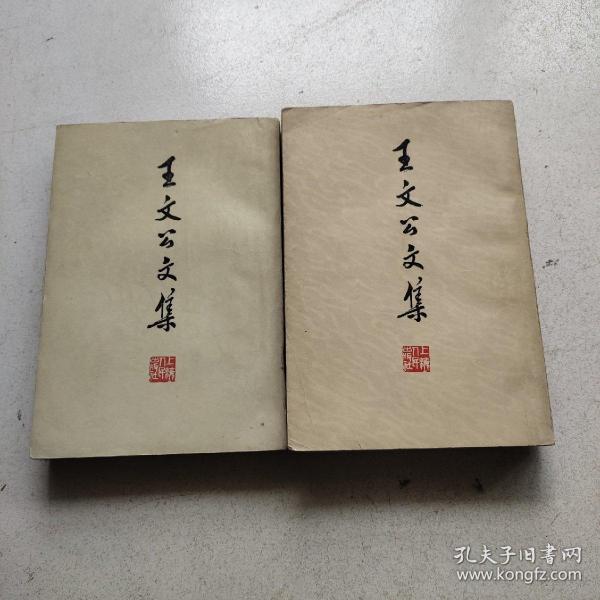 王文公文集
上海人民出版社
王文公文集
上海人民出版社
孔夫子旧书网
www.kongfz.com